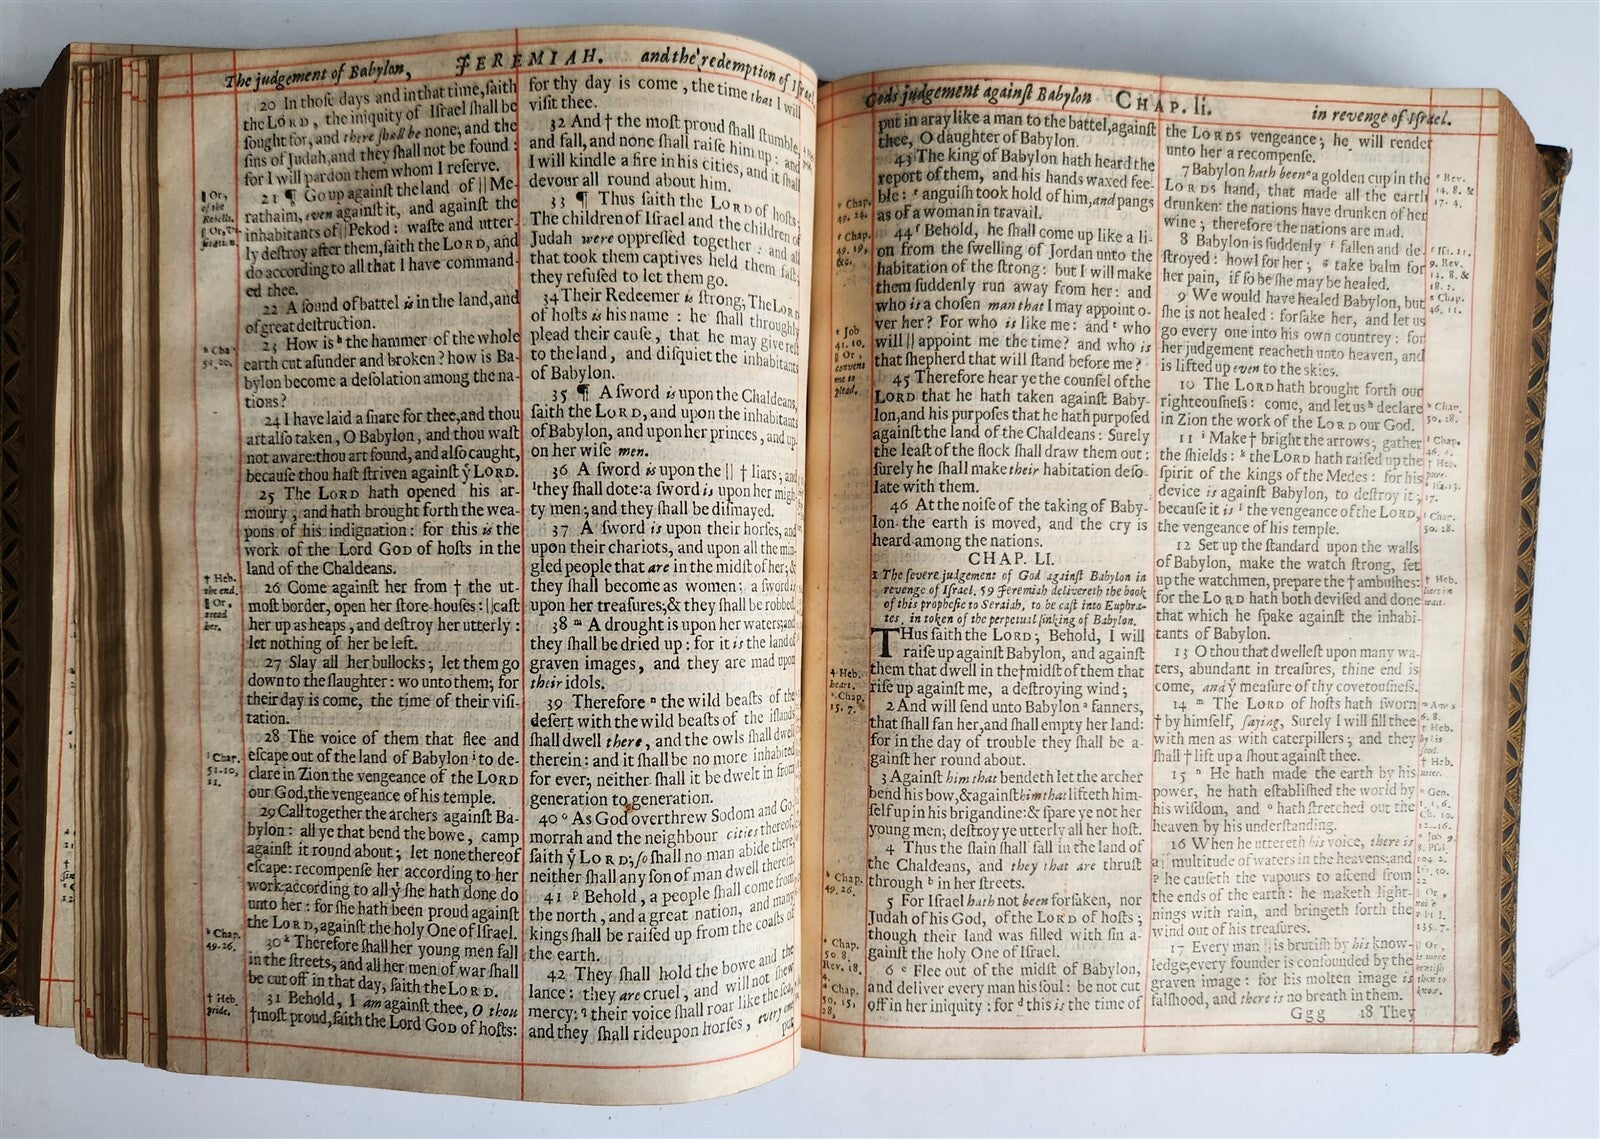 The judgement of Babylon, JEREMIAH. and the redemption of Israel.
20 In thoſe days and in that time, ſaith
the LORD, the iniquity of Iſrael ſhall be
ſought for, and there ſhall be none; and the
ſins of Judah, and they ſhall not be found:
for I will pardon them whom I reſerve.
21 ¶ Go up againſt the land of || Me-
rathaim, even againſt it, and againſt the
inhabitants of || Pekod: waſte and utter-
ly deſtroy after them, ſaith the LORD, and
do according to all that I have command-
ed thee.
22 A ſound of battel is in the land, and
of great deſtruction.
23 How is h the hammer of the whole
earth cut aſunder and broken? how is Ba-
bylon become a deſolation among the na-
tions?
24 I have laid a ſnare for thee, and thou
art alſo taken, O Babylon, and thou waſt
not aware: thou art found, and alſo caught,
becauſe thou haſt ſtriven againſt ẏ LORD.
25 The LORD hath opened his ar-
moury, and hath brought forth the wea-
pons of his indignation: for this is the
work of the Lord GOD of hoſts in the
land of the Chaldeans.
26 Come againſt her from † the ut-
moſt border, open her ſtore houſes: || caſt
her up as heaps, and deſtroy her utterly:
let nothing of her be left.
27 Slay all her bullocks; let them go
down to the ſlaughter: wo unto them; for
their day is come, the time of their viſi-
tation.
28 The voice of them that flee and
eſcape out of the land of Babylon i to de-
clare in Zion the vengeance of the LORD
our God, the vengeance of his temple.
29 Call together the archers againſt Ba-
bylon: all ye that bend the bowe, camp
againſt it round about; let none thereof
eſcape: recompenſe her according to her
work: according to all ẏ ſhe hath done do
unto her: for ſhe hath been proud againſt
the LORD, againſt the holy One of Iſrael.
30 k Therefore ſhall her young men fall
in the ſtreets, and all her men of war ſhall
be cut off in that day, ſaith the LORD.
31 Behold, I am againſt thee, O thou
† moſt proud, ſaith the Lord GOD of hoſts:
for thy day is come, the time that I will
viſit thee.
32 And † the moſt proud ſhall ſtumble
and fall, and none ſhall raiſe him up: and
I will kindle a fire in his cities, and it ſhall
devour all round about him.
33 ¶ Thus ſaith the LORD of hoſts;
The children of Iſrael and the children of
Judah were oppreſſed together: and all
that took them captives held them faſt;
they refuſed to let them go.
34 Their Redeemer is ſtrong; The LORD
of hoſts is his name: he ſhall throughly
plead their cauſe, that he may give reſt
to the land, and diſquiet the inhabitants
of Babylon.
35 ¶ A ſword is upon the Chaldeans,
ſaith the LORD, and upon the inhabitants
of Babylon, and upon her princes, and up-
on her wiſe men.
36 A ſword is upon the || † liars; and
l they ſhall dote: a ſword is upon her migh-
ty men; and they ſhall be diſmayed.
37 A ſword is upon their horſes, and
upon their chariots, and upon all the min-
gled people that are in the midſt of her; &
they ſhall become as women: a ſword is
upon her treaſures; & they ſhall be robbed.
38 m A drought is upon her waters; and
they ſhall be dried up: for it is the land of
graven images, and they are mad upon
their idols.
39 Therefore n the wild beaſts of the
deſert with the wild beaſts of the iſlands
ſhall dwell there, and the owls ſhall dwell
therein: and it ſhall be no more inhabited
for ever; neither ſhall it be dwelt in from
generation to generation.
40 o As God overthrew Sodom and Go-
morrah and the neighbour cities thereof,
ſaith ẏ LORD; ſo ſhall no man abide there,
neither ſhall any ſon of man dwell therein.
41 p Behold, a people ſhall come from
the north, and a great nation, and many
kings ſhall be raiſed up from the coaſts of
the earth.
42 They ſhall hold the bowe and the
lance: they are cruel, and will not ſhew
mercy: q their voice ſhall roar like the ſea,
and they ſhall ride upon horſes, every one
put
Gods judgement againſt Babylon CHAP. li. in revenge of Iſrael.
put in aray like a man to the battel, againſt
thee, O daughter of Babylon.
43 The king of Babylon hath heard the
report of them, and his hands waxed fee-
ble: r anguiſh took hold of him, and pangs
as of a woman in travail.
44 ſ Behold, he ſhall come up like a li-
on from the ſwelling of Jordan unto the
habitation of the ſtrong: but I will make
them ſuddenly run away from her: and
who is a choſen man that I may appoint o-
ver her? For who is like me: and t who
will || appoint me the time? and who is
that ſhepherd that will ſtand before me?
45 Therefore hear ye the counſel of the
LORD that he hath taken againſt Baby-
lon, and his purpoſes that he hath purpoſed
againſt the land of the Chaldeans: Surely
the leaſt of the flock ſhall draw them out:
ſurely he ſhall make their habitation deſo-
late with them.
46 At the noiſe of the taking of Baby-
lon the earth is moved, and the cry is
heard among the nations.
CHAP. LI.
1 The ſevere judgement of God againſt Babylon in
revenge of Iſrael. 59 Jeremiah delivereth the book
of this propheſie to Seraiah, to be caſt into Euphra-
tes, in token of the perpetual ſinking of Babylon.
THus ſaith the LORD; Behold, I will
raiſe up againſt Babylon, and againſt
them that dwell in the † midſt of them that
riſe up againſt me, a deſtroying wind;
2 And will ſend unto Babylon a fanners,
that ſhall fan her, and ſhall empty her land:
for in the day of trouble they ſhall be a-
gainſt her round about.
3 Againſt him that bendeth let the archer
bend his bow, & againſt him that lifteth him-
ſelf up in his brigandine: & ſpare ye not her
young men; deſtroy ye utterly all her hoſt.
4 Thus the ſlain ſhall fall in the land of
the Chaldeans, and they that are thruſt
through b in her ſtreets.
5 For Iſrael hath not been forſaken, nor
Judah of his God, of the LORD of hoſts;
though their land was filled with ſin a-
gainſt the holy One of Iſrael.
6 c Flee out of the midſt of Babylon,
and deliver every man his ſoul: be not cut
off in her iniquity: for d this is the time of
the LORDS vengeance; he will render
unto her a recompenſe.
7 Babylon hath been e a golden cup in the
LORDS hand, that made all the earth
drunken: the nations have drunken of her
wine; therefore the nations are mad.
8 Babylon is ſuddenly f fallen and de-
ſtroyed: howl for her; g take balm for
her pain, if ſo be ſhe may be healed.
9 We would have healed Babylon, but
ſhe is not healed: forſake her, and let us
go every one into his own countrey: for
her judgement reacheth unto heaven, and
is lifted up even to the skies.
10 The LORD hath brought forth our
righteouſneſs: come, and let us h declare
in Zion the work of the LORD our God.
11 i Make † bright the arrows; gather
the ſhields: k the LORD hath raiſed up the
ſpirit of the kings of the Medes: for his
device is againſt Babylon, to deſtroy it;
becauſe it is l the vengeance of the LORD,
the vengeance of his temple.
12 Set up the ſtandard upon the walls
of Babylon, make the watch ſtrong, ſet
up the watchmen, prepare the † ambuſhes:
for the LORD hath both deviſed and done
that which he ſpake againſt the inhabi-
tants of Babylon.
13 O thou that dwelleſt upon many wa-
ters, abundant in treaſures, thine end is
come, and ẏ meaſure of thy covetouſneſs.
14 m The LORD of hoſts hath ſworn
† by himſelf, ſaying, Surely I will fill thee
with men as with caterpillers; and they
ſhall † lift up a ſhout againſt thee.
15 n He hath made the earth by his
power, he hath eſtabliſhed the world by
his wiſdom, and o hath ſtretched out the
heaven by his underſtanding.
16 When he uttereth his voice, there is
a || multitude of waters in the heavens; and
p he cauſeth the vapours to aſcend from
the ends of the earth: he maketh light-
nings with rain, and bringeth forth the
wind out of his treaſures.
17 Every man || is brutiſh by his know-
ledge; every founder is confounded by the
graven image: for his molten image is
falſhood, and there is no breath in them.
Ggg 18 They